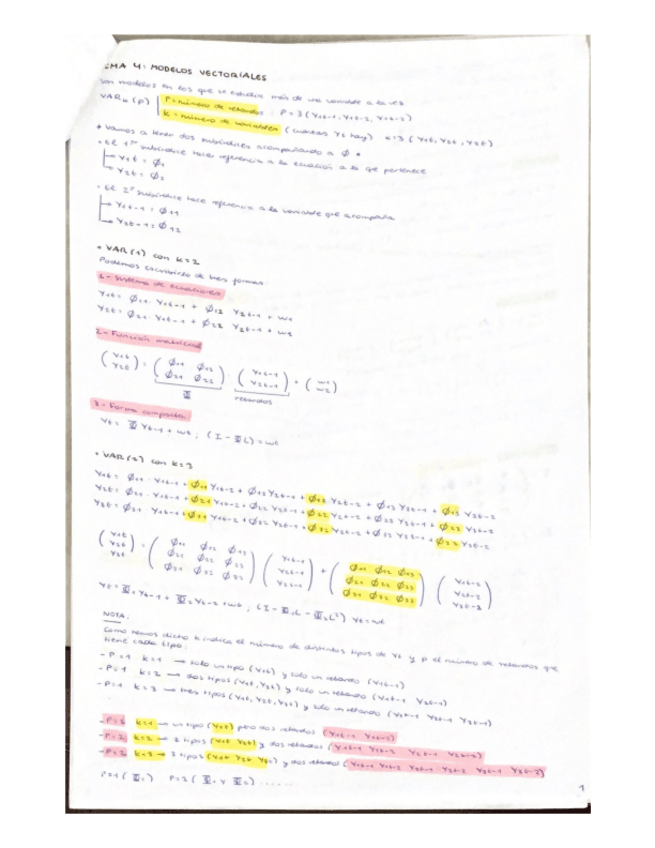 TEMA 4: MODELOS VECTORIALES
Son modelos en los que se estudia más de una variable a la vez
VARk (p) P = número de retardos : P=3 (Yt-1, Yt-2, Yt-3)
k = número de variables (cuantas Yt hay) k=3 (Y1t, Y2t, Y3t)
* Vamos a tener dos subíndices acompañando a Ø *
- El 1er subíndice hace referencia a la ecuación a la que pertenece
Y1t = Ø1
Y2t = Ø2
- El 2º subíndice hace referencia a la variable que acompaña
Y1t-1 = Ø11
Y2t-1 = Ø12
* VAR(1) con k=2
Podemos escribirlo de tres formas:
1- Sistema de ecuaciones
Y1t = Ø11 · Y1t-1 + Ø12 Y2t-1 + w1
Y2t = Ø21 · Y1t-1 + Ø22 Y2t-1 + w2
2- Función matricial
(Y1t Y2t) = (Ø11 Ø12 Ø21 Ø22) · (Y1t-1 Y2t-1) + (w1 w2)
Φ retardos
3- Forma compacta
Yt = Φ Yt-1 + wt ; (I - ΦL) = wt
* VAR(2) con k=3
Y1t = Ø11 · Y1t-1 + Ø11 Y1t-2 + Ø12 Y2t-1 + Ø12 Y2t-2 + Ø13 Y3t-1 + Ø13 Y3t-2
Y2t = Ø21 · Y1t-1 + Ø21 Y1t-2 + Ø22 Y2t-1 + Ø22 Y2t-2 + Ø23 Y3t-1 + Ø23 Y3t-2
Y3t = Ø31 · Y1t-1 + Ø31 Y1t-2 + Ø32 Y2t-1 + Ø32 Y2t-2 + Ø33 Y3t-1 + Ø33 Y3t-2
(Y1t Y2t Y3t) = (Ø11 Ø12 Ø13 Ø21 Ø22 Ø23 Ø31 Ø32 Ø33) (Y1t-1 Y2t-1 Y3t-1) + (Ø11 Ø12 Ø13 Ø21 Ø22 Ø23 Ø31 Ø32 Ø33) (Y1t-2 Y2t-2 Y3t-2)
Yt = Φ1 Yt-1 + Φ2 Yt-2 + wt ; (I - Φ1L - Φ2L²) Yt = wt
NOTA:
Como hemos dicho k indica el número de distintos tipos de Yt y p el número de retardos que
tiene cada tipo:
- P=1 k=1 → solo un tipo (Y1t) y solo un retardo (Y1t-1)
- P=1 k=2 → dos tipos (Y1t, Y2t) y solo un retardo (Y1t-1 Y2t-1)
- P=1 k=3 → tres tipos (Y1t, Y2t, Y3t) y solo un retardo (Y1t-1 Y2t-1 Y3t-1)
- P=2 k=1 → un tipo (Y1t) pero dos retardos (Y1t-1 Y1t-2)
- P=2 k=2 → 2 tipos (Y1t Y2t) y dos retardos (Y1t-1 Y1t-2 Y2t-1 Y2t-2)
- P=2 k=3 → 3 tipos (Y1t Y2t Y3t) y dos retardos (Y1t-1 Y1t-2 Y2t-1 Y2t-2 Y3t-1 Y3t-2)
P=1 (Φ1) P=2 (Φ1 y Φ2) ........
1